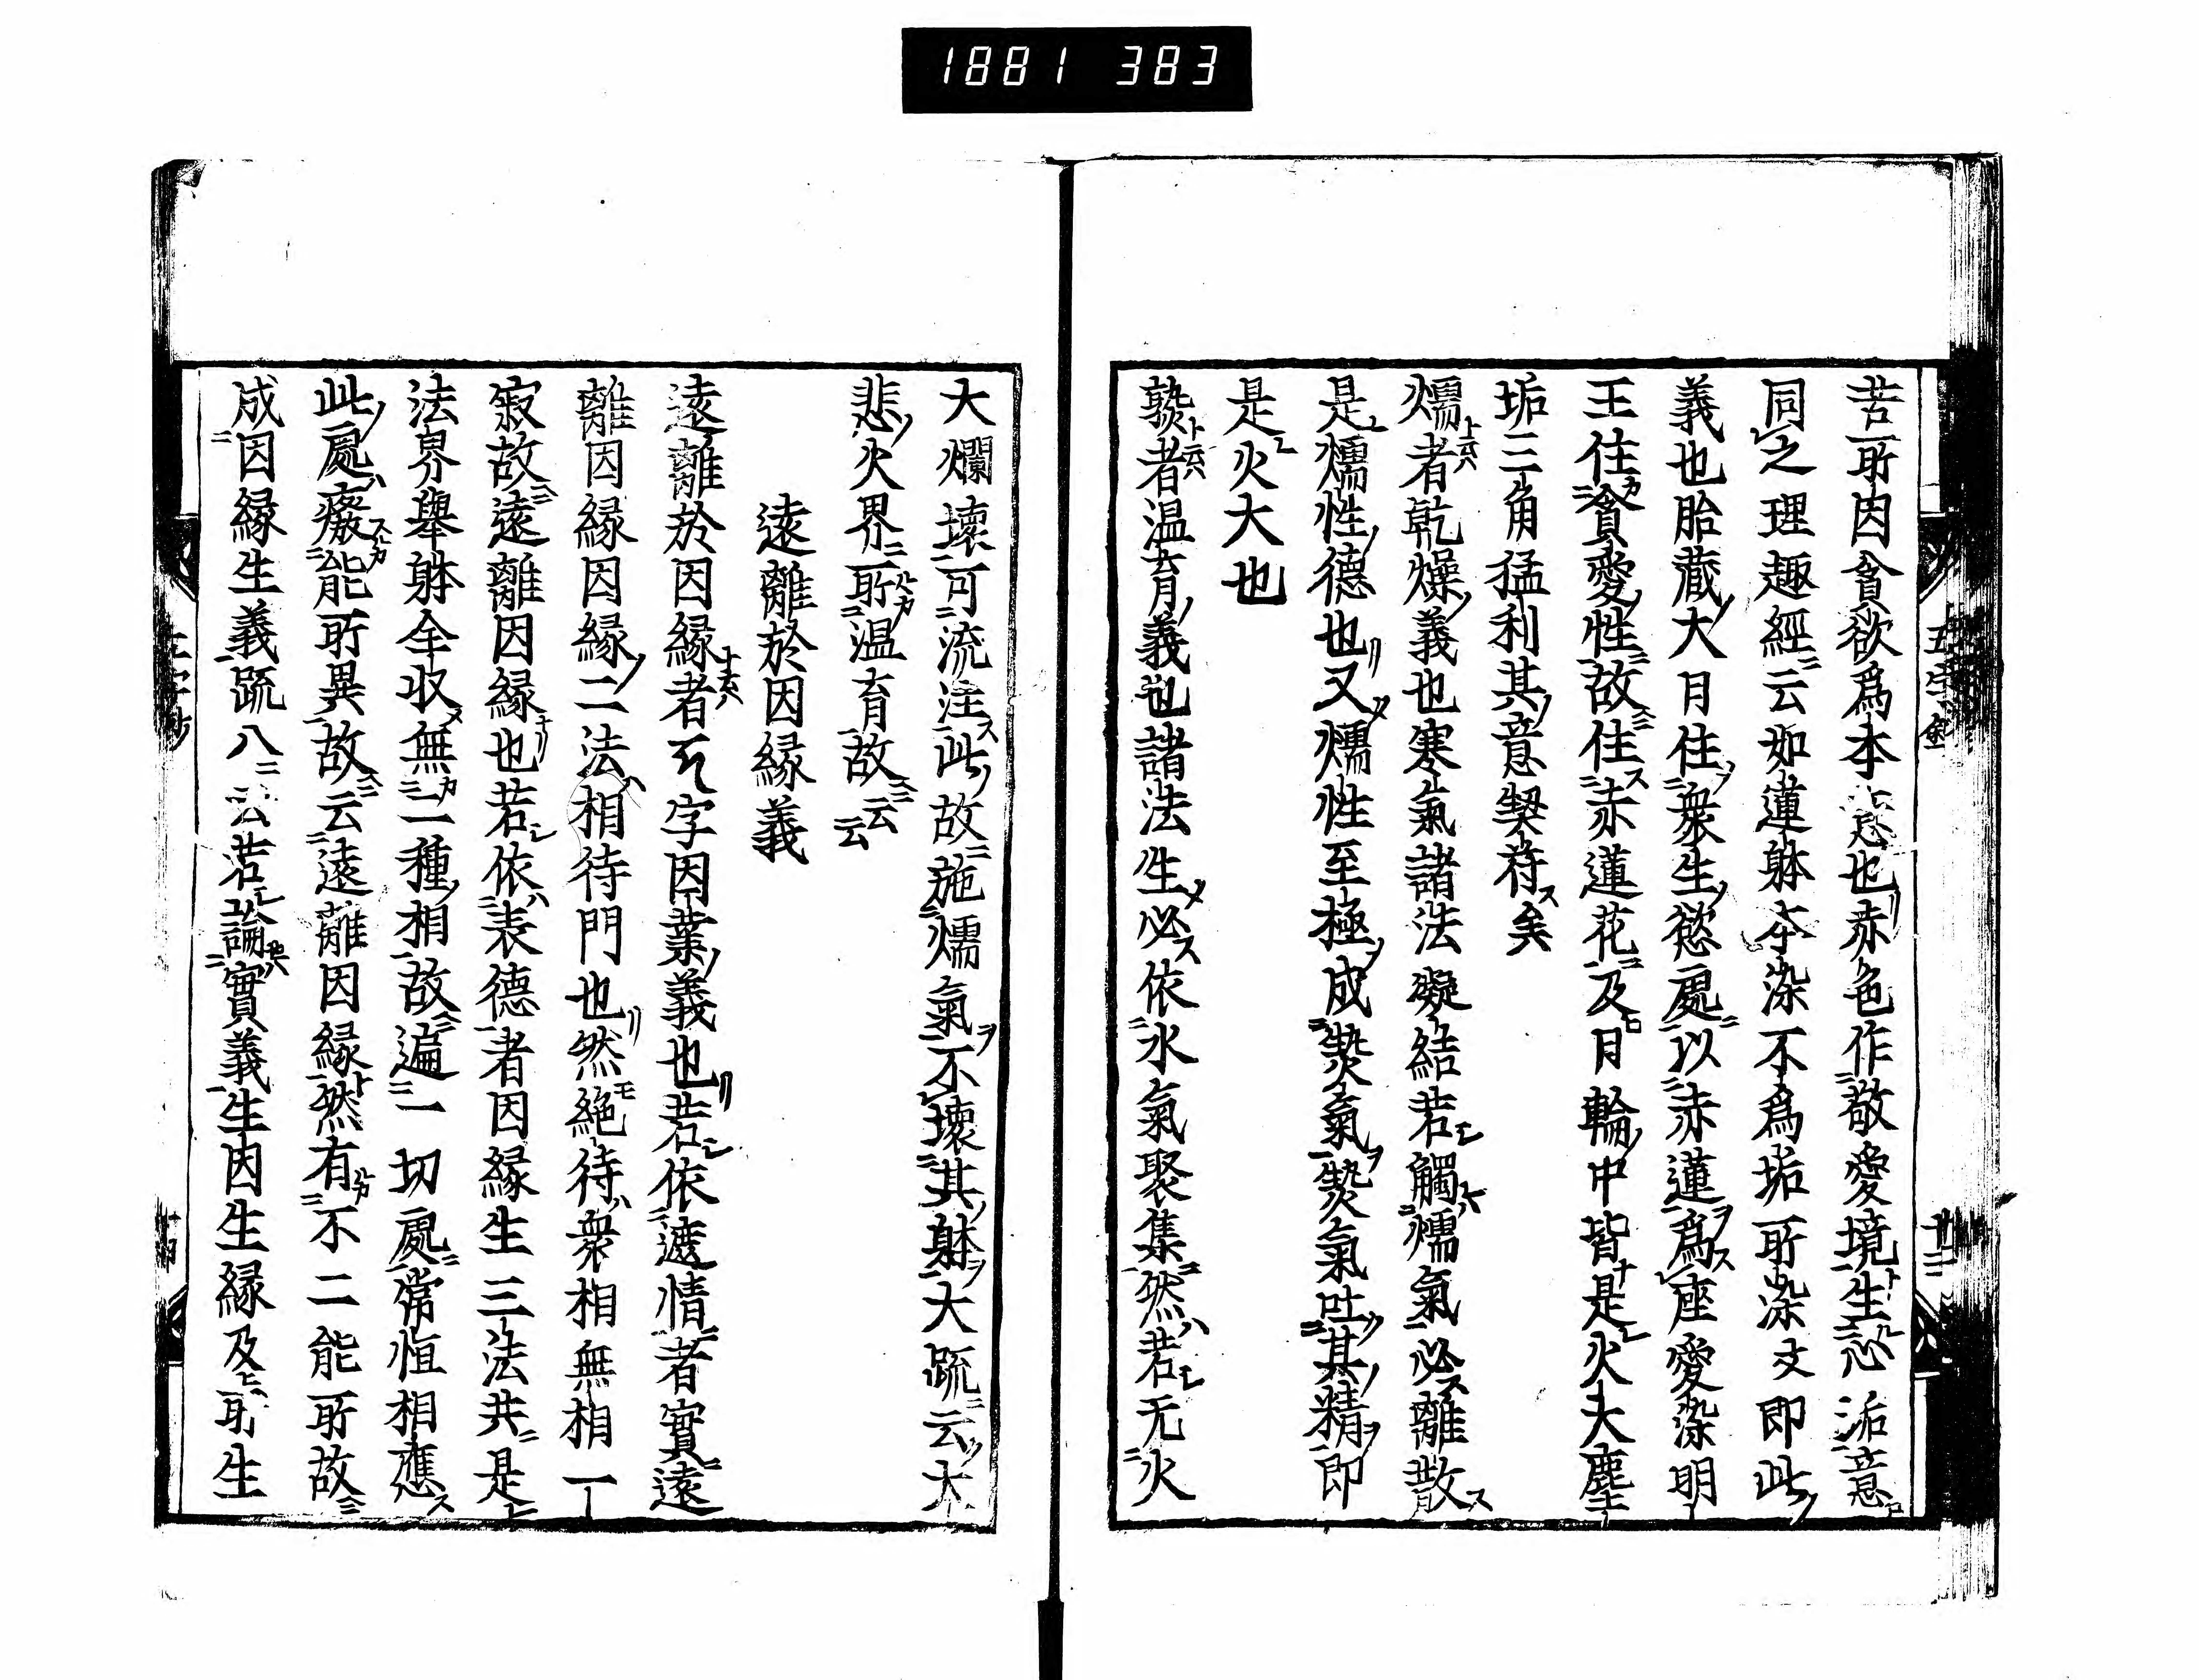 1881 383
苦所因貪欲爲本 悲也赤色作敬愛境生忿泌意
同之理趣經云如蓮躰本染不爲垢所染文即此
義也胎藏大日住衆生慾處以赤蓮爲座愛染明
王住貪愛性故住赤蓮花及日輪中皆是火大塵
垢三角猛利其意契符矣
燸者乾燥義也寒氣諸法凝結若觸燸氣必離散
是燸性德也又燸性至極成㷀氣㷀氣吐其精即
是火大也
㷀者温育義也諸法生必依水氣聚集然若无火
大爛壞可流注此故施燸氣不壞其躰大疏云大
悲火界所温育故云云
遠離於因緣義
遠離於因緣者 字因業義也若依遮情者實遠
離因緣因緣二法相待門也然絶待衆相無相一
寂故遠離因緣也若依表德者因緣生三法共是
法界擧躰全収無二種相故遍一切處常恒相應
此處癈能所異故云遠離因緣然有不二能所故
成因緣生義疏八云若論實義生因生緣及所生